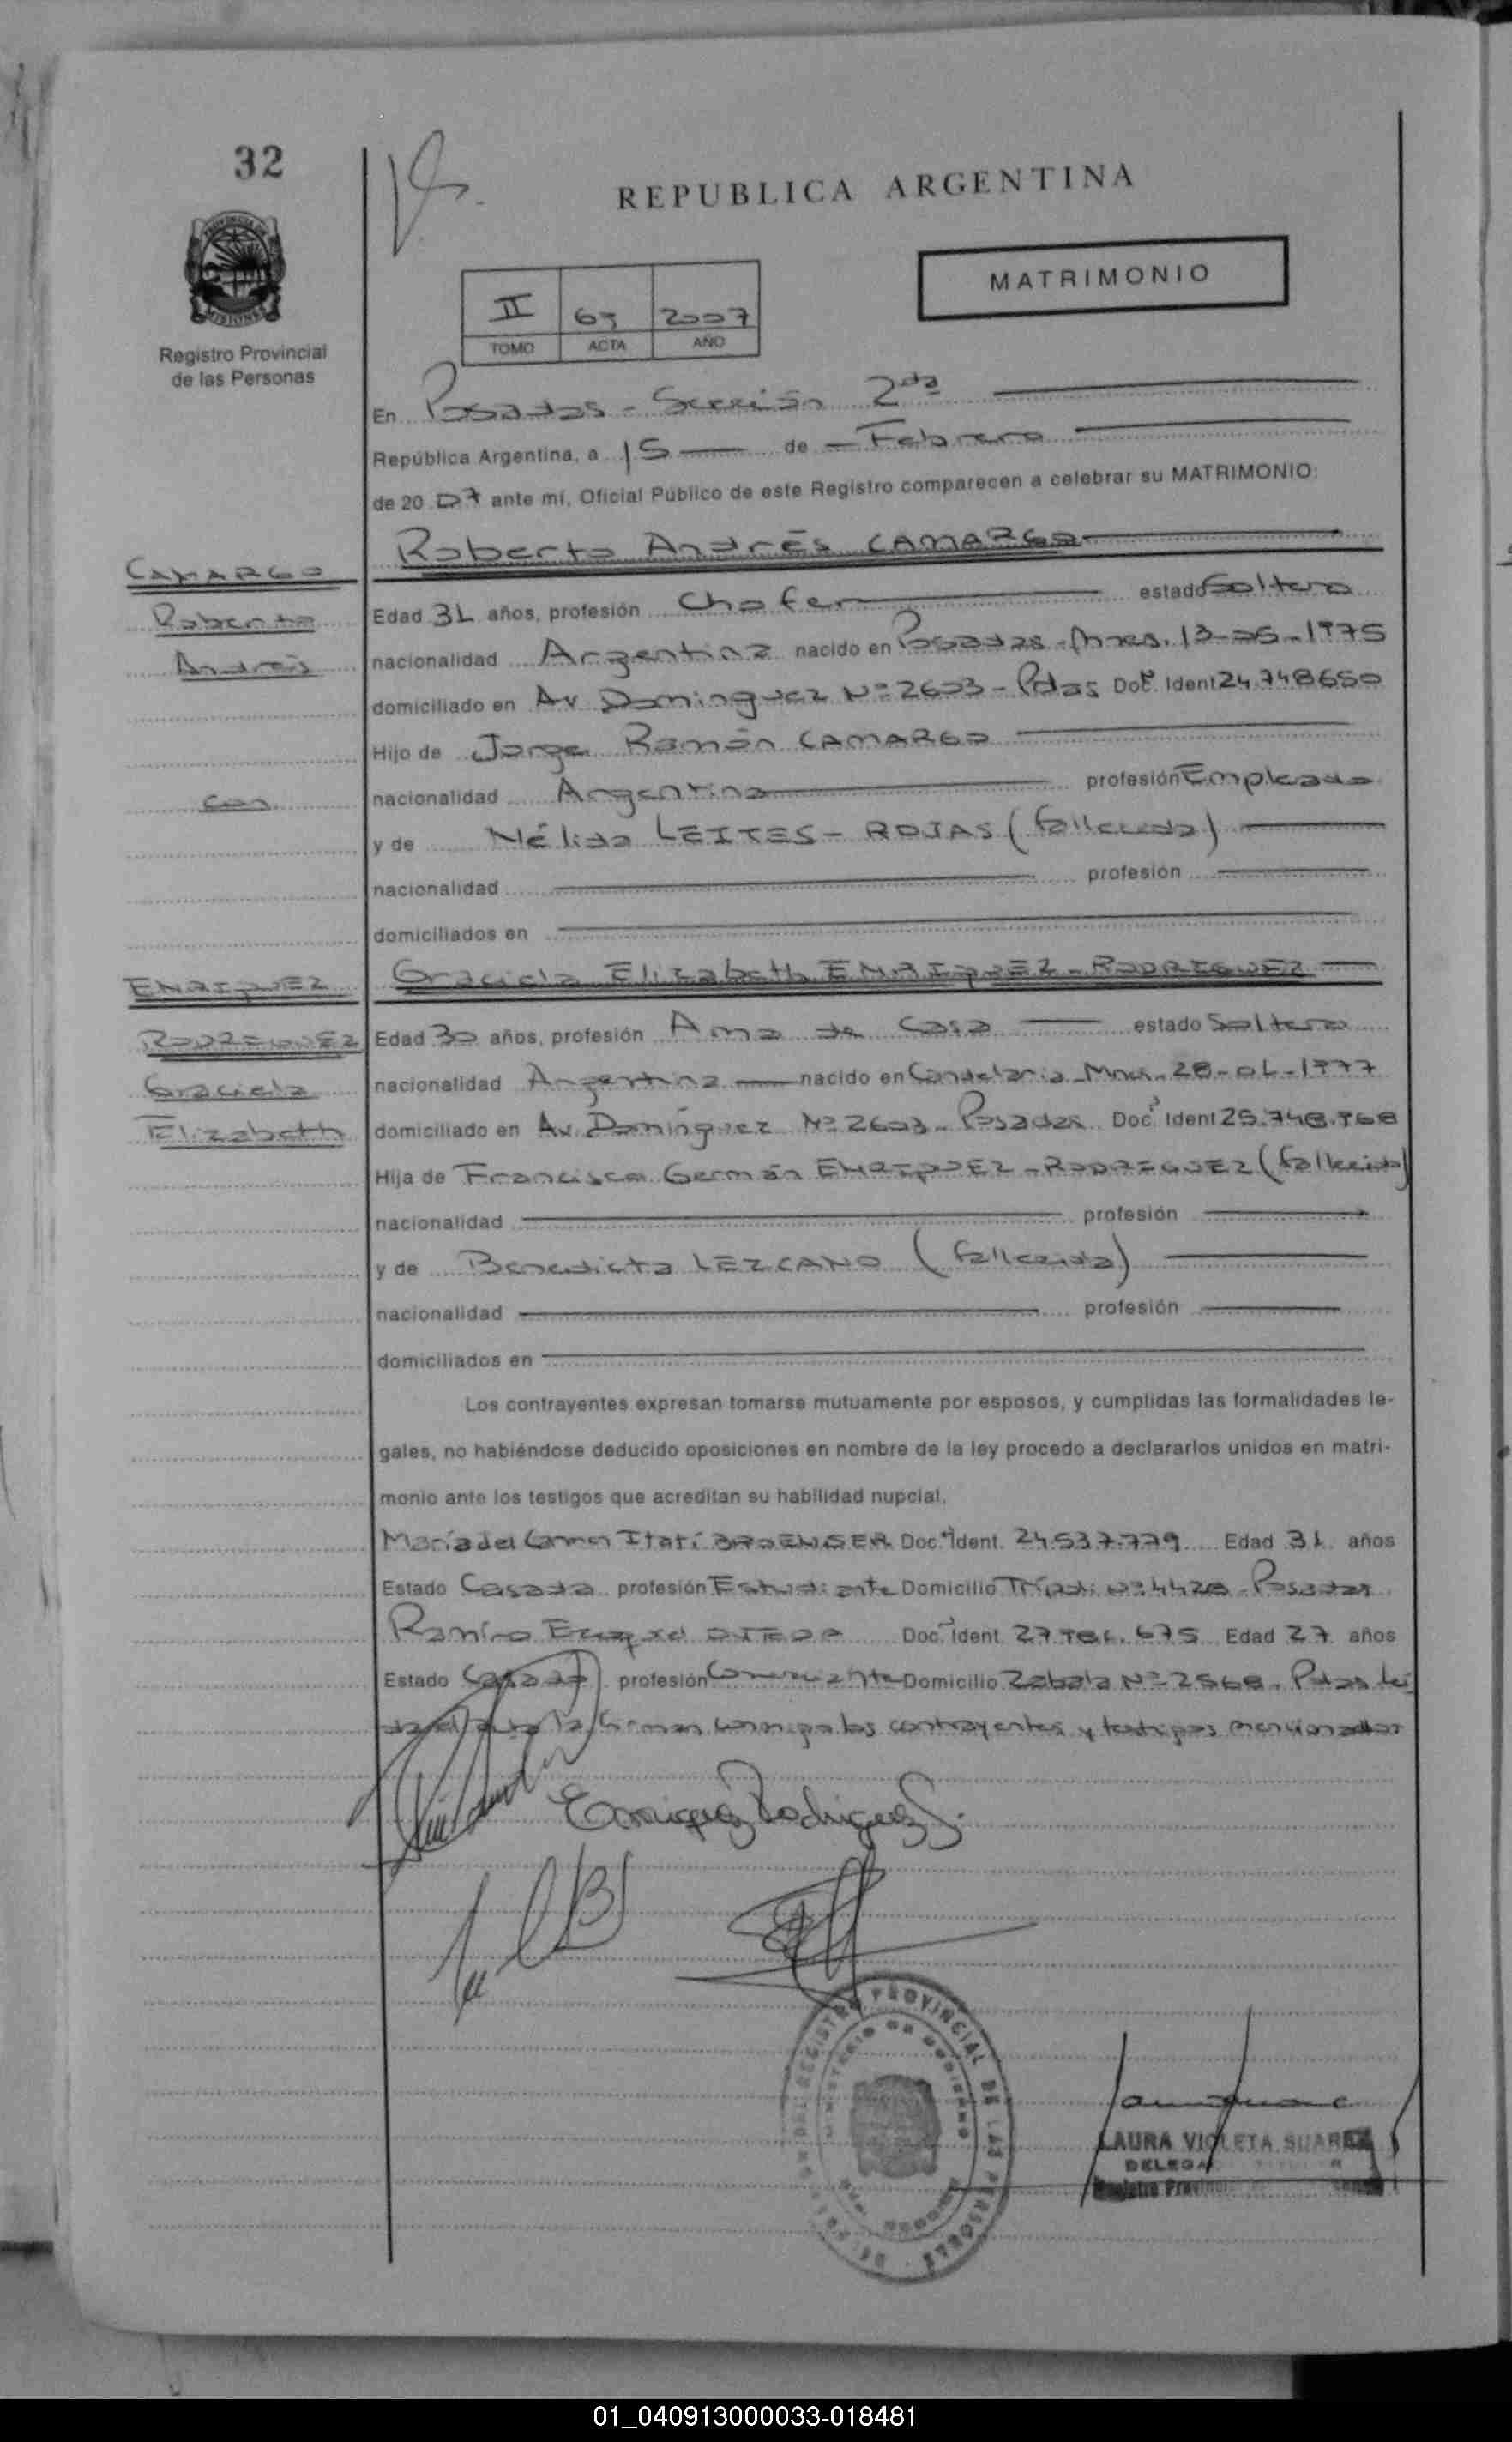 32
REPUBLICA ARGENTINA
MATRIMONIO
II 63 2007
TOMO ACTA AÑO
PROVINCIA DE
MISIONES
Registro Provincial
de las Personas
En Posadas - Sección 2da
República Argentina, a 15 de Febrero
de 2007 ante mí, Oficial Público de este Registro comparecen a celebrar su MATRIMONIO:
Roberto Andrés CAMARGO
CAMARGO
Roberto
Andrés
con
Edad 31 años, profesión Chofer estado Soltero
nacionalidad Argentina nacido en Posadas - Mnes. 13-05-1975
domiciliado en Av Dominguez Nº 2603 - Pdas Doc. Ident 24.748650
Hijo de Jorge Ramón CAMARGO
nacionalidad Argentino profesión Empleado
y de Nélida LEITES - ROJAS (fallecida)
nacionalidad profesión
domiciliados en
Graciela Elizabeth ENRIQUEZ - RODRIGUEZ
ENRIQUEZ
RODRIGUEZ
Graciela
Elizabeth
Edad 30 años, profesión Ama de Casa estado Soltera
nacionalidad Argentina nacido en Candelaria - Mnes. 28-01-1977
domiciliado en Av. Domínguez Nº 2603 - Posadas Doc. Ident 25.748.968
Hija de Francisco Germán ENRIQUEZ - RODRIGUEZ (fallecido)
nacionalidad profesión
y de Benedicta LEZCANO (fallecida)
nacionalidad profesión
domiciliados en
Los contrayentes expresan tomarse mutuamente por esposos, y cumplidas las formalidades le-
gales, no habiéndose deducido oposiciones en nombre de la ley procedo a declararlos unidos en matri-
monio ante los testigos que acreditan su habilidad nupcial.
María del Carmen Itatí Doc. Ident. 24.537.779 Edad 31 años
Estado Casada profesión Estudiante Domicilio Nº 4428 - Posadas
Ramiro Ezequiel OJEDA Doc. Ident. Edad 27 años
Estado Casado profesión Comerciante Domicilio Zabala Nº 2568 - Pdas Leí
da el acta la firman conmigo los contrayentes y testigos mencionados
Enriquez Rodriguez G.
REGISTRO PROVINCIAL DE LAS PERSONAS
MINISTERIO DE GOBIERNO
LAURA VIOLETA SUAREZ
DELEGA
Registro Provin
01_040913000033-018481